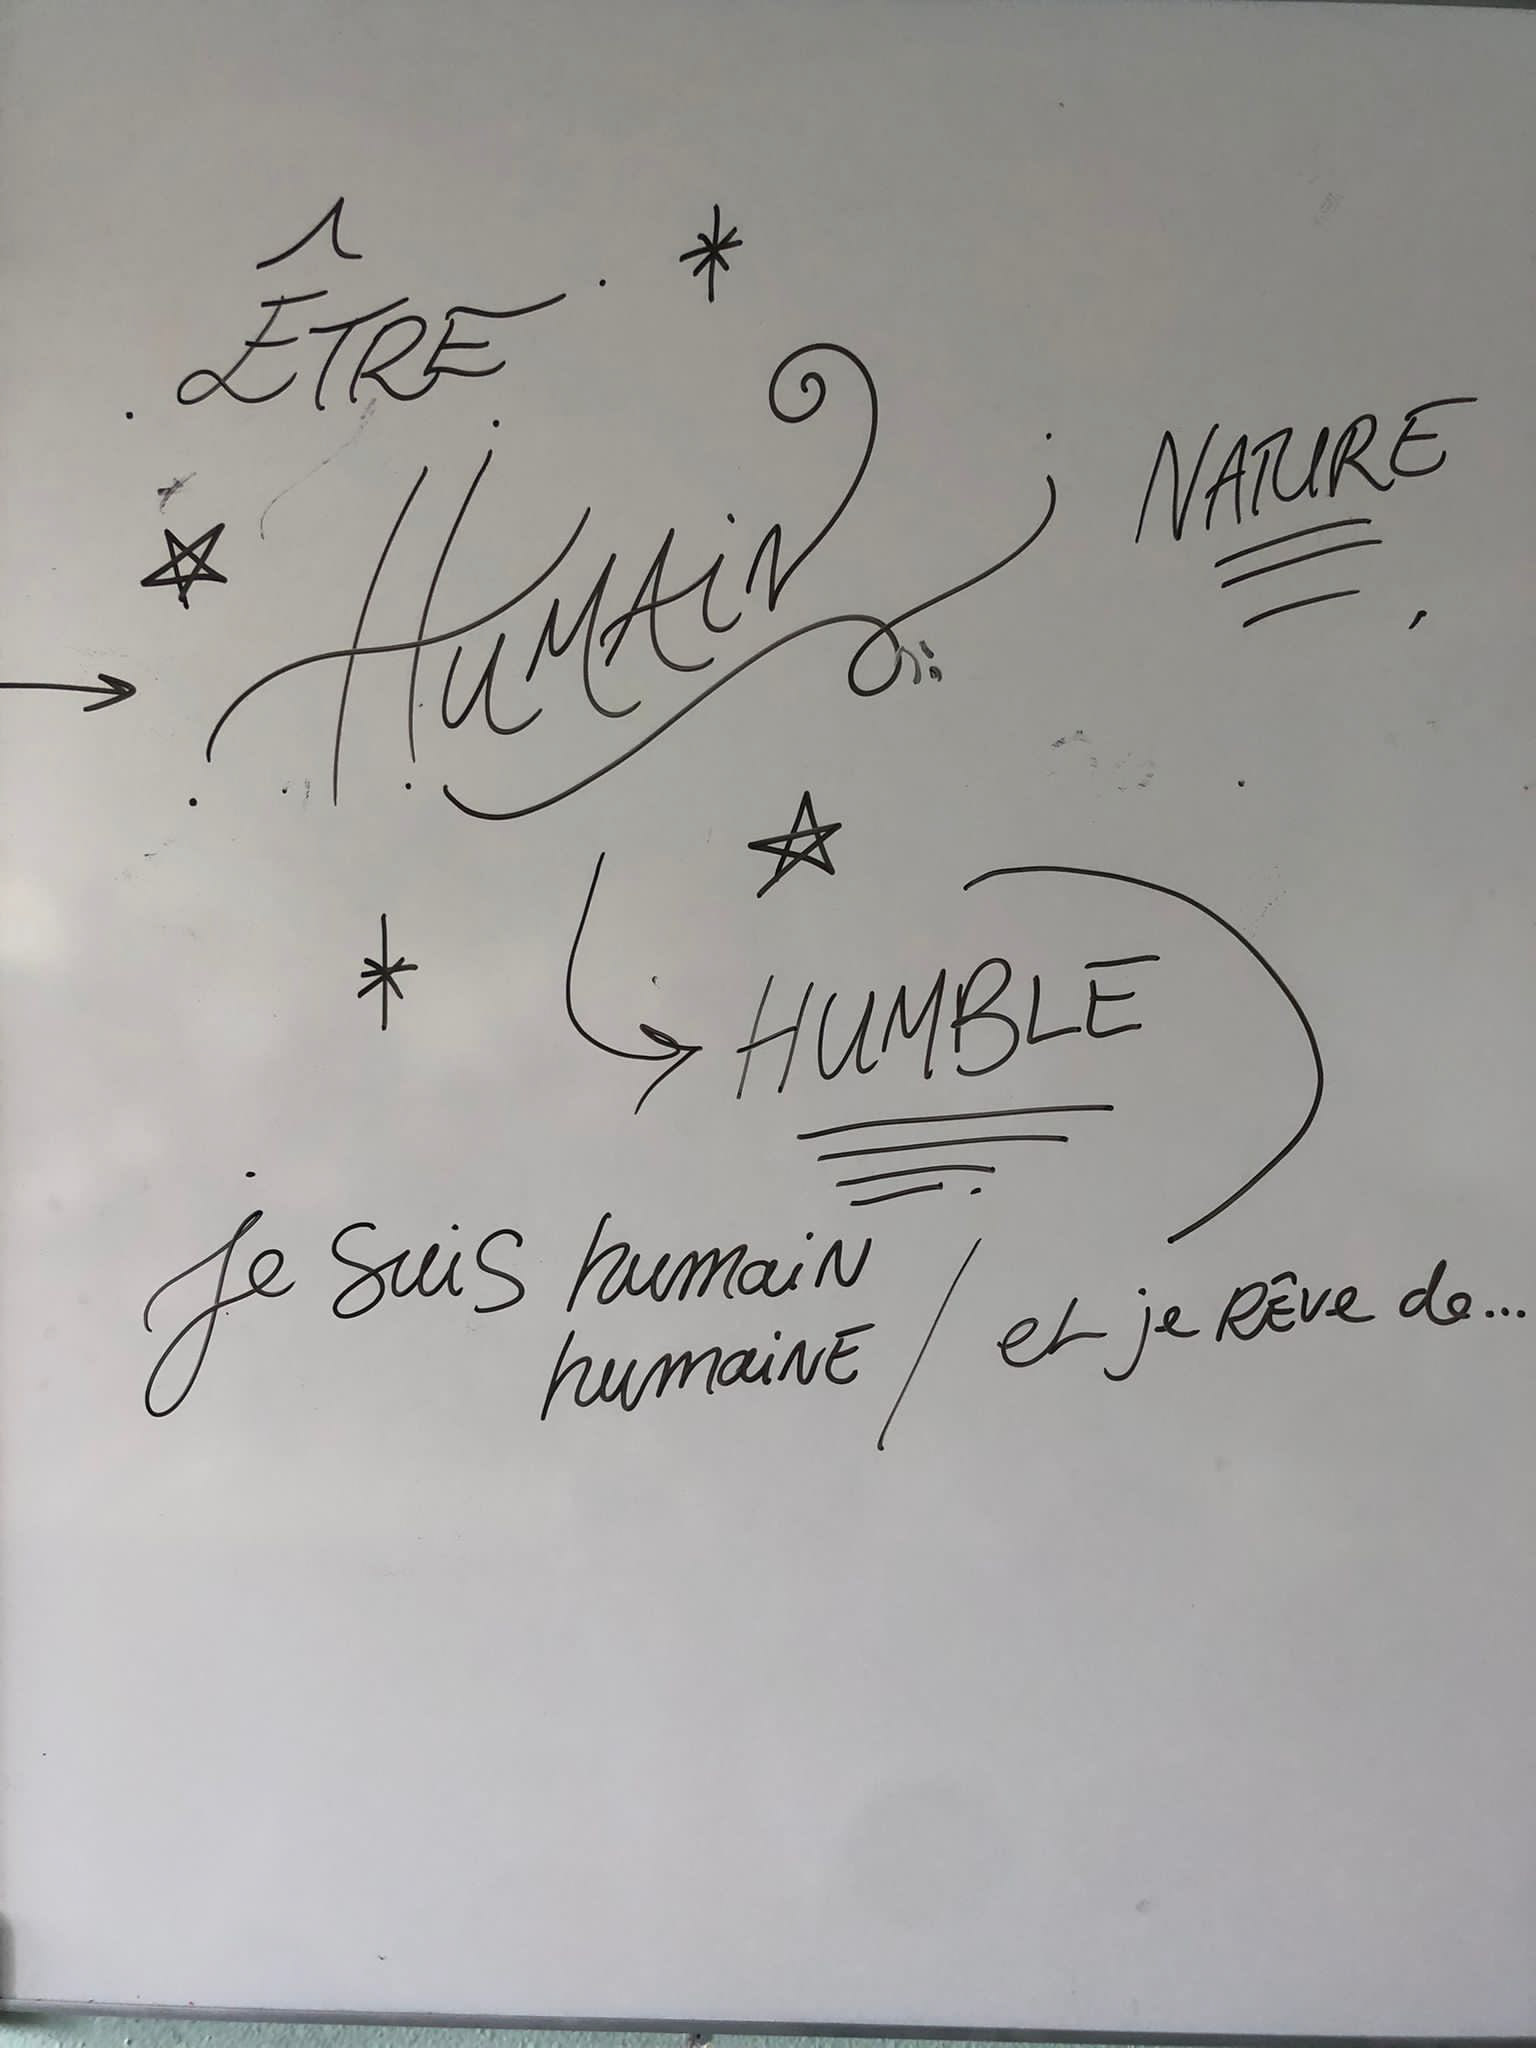 ÊTRE
HUMAiN
NATURE
HUMBLE
je suis humain
humaine / et je rêve de...